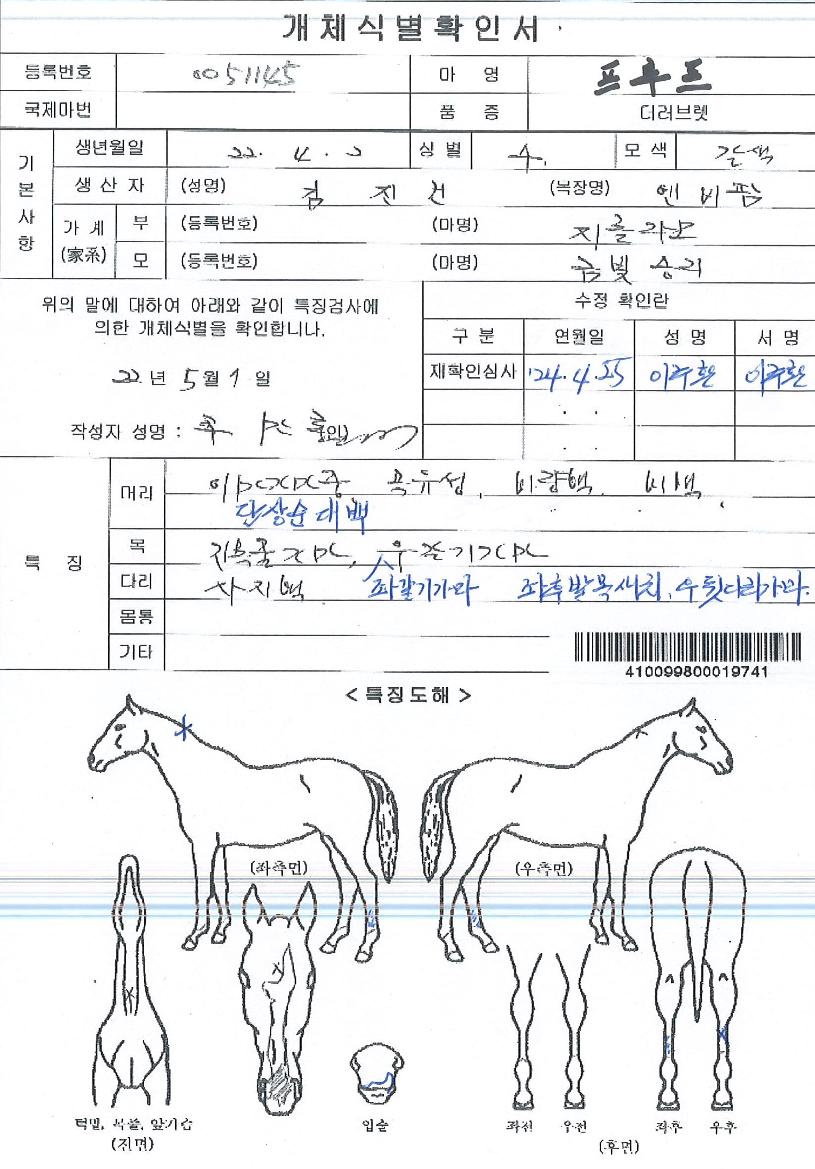 개체식별확인서
등록번호 0051145 마 명 프루프
국제마번 품 종 디러브렛
기본사항
생년월일 22. 4. 2 성별 수. 모색 갈색
생산자 (성명) 김 진 건 (목장명) 엔비팜
가계(家系) 부 (등록번호) (마명) 지롤라모
모 (등록번호) (마명) 금빛 승리
위의 말에 대하여 아래와 같이 특징검사에
의한 개체식별을 확인합니다.
22년 5월 9일
작성자 성명 :
수정 확인란
구 분 연월일 성 명 서 명
재확인심사 '24.4.25 이주환 이주환
특 징
머리 곡유성, 비량백, 비백
단상순대백
목
다리 사지백 좌갈기가마 좌후발목새치, 우뒷다리가마.
몸통
기타
410099800019741
< 특징도해 >
(좌측면) (우측면)
턱밑, 목줄, 앞가슴
(전면)
입술
좌전 우전 좌후 우후
(후면)